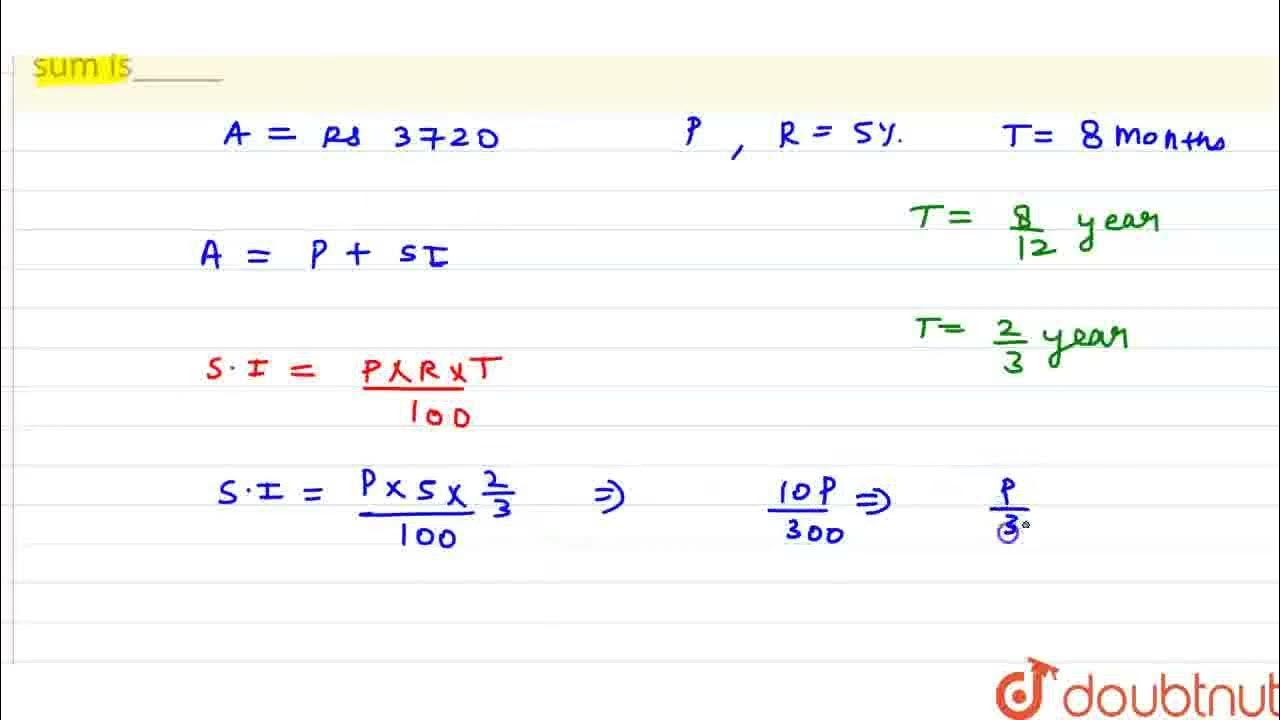 sum is______
A = Rs 3720 P, R = 5%. T = 8 months
T = 8/12 year
A = P + SI
T = 2/3 year
S.I = P×R×T/100
S.I = P×5×2/3/100 ⇒ 10P/300 ⇒ P/3
doubtnut